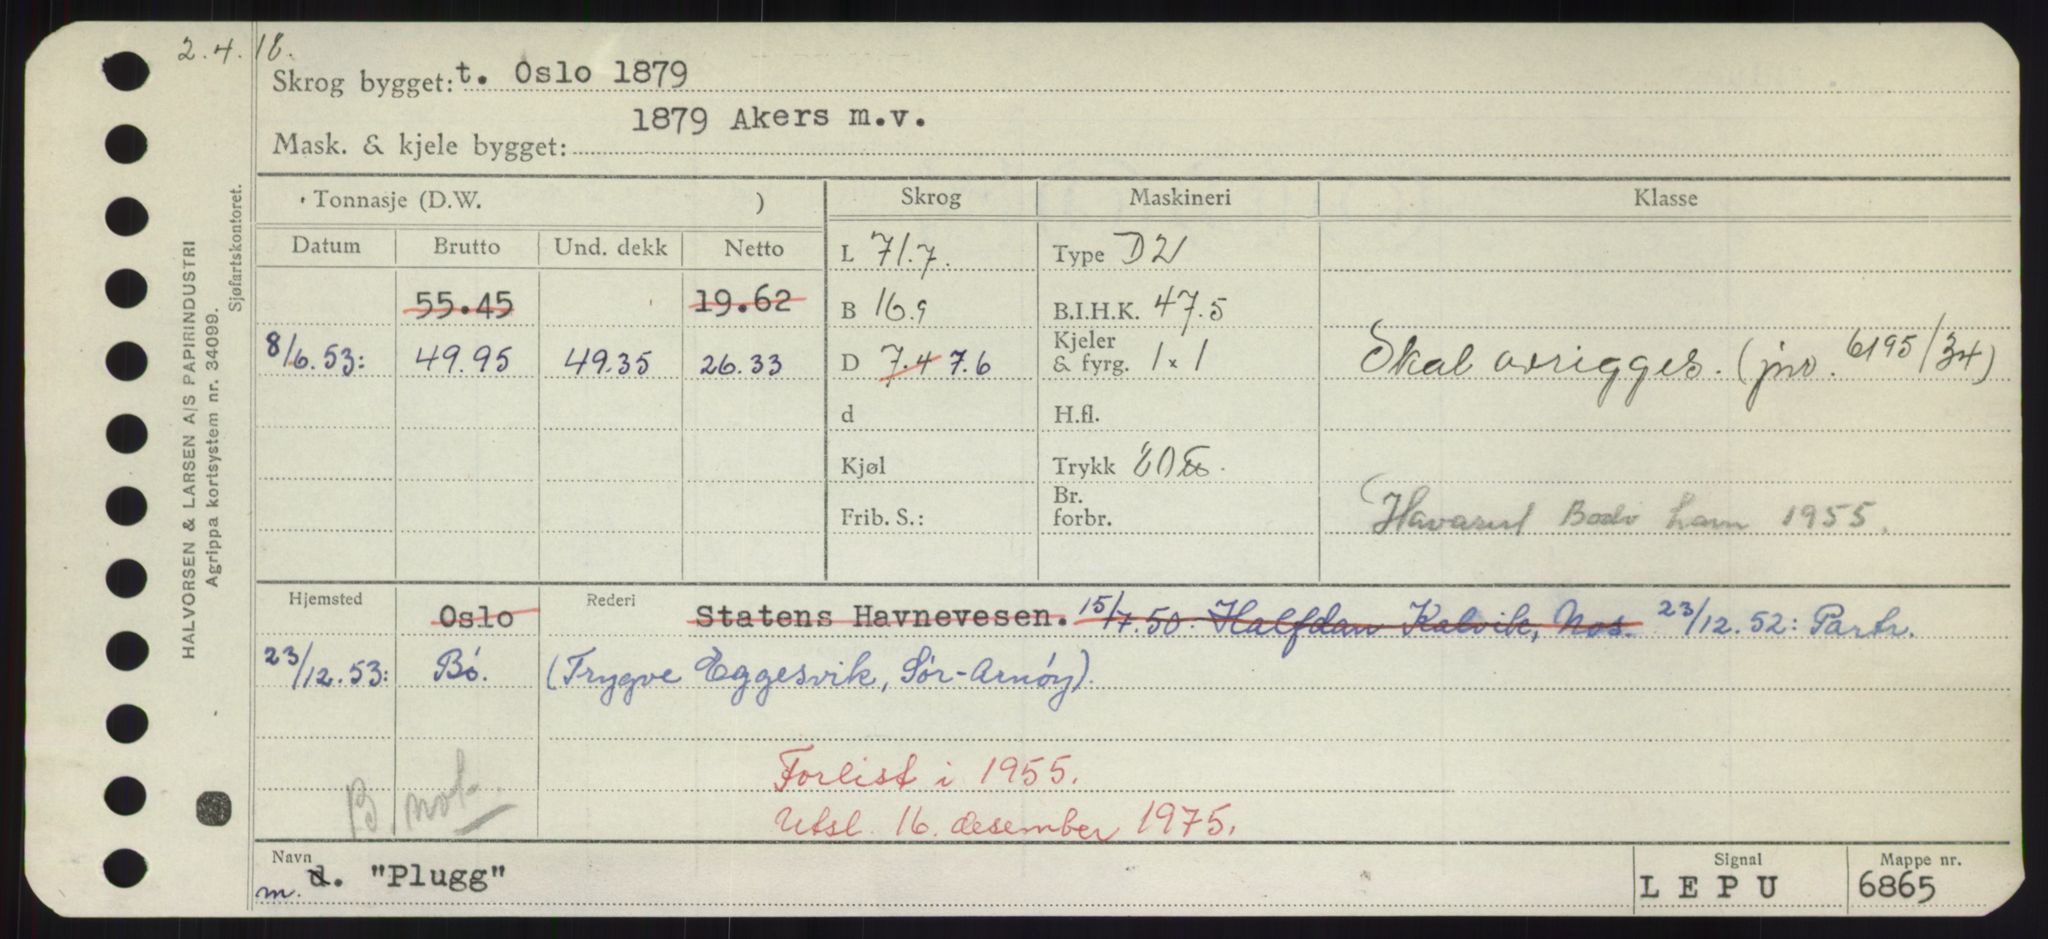 2.4.18.
Skrog bygget: t. Oslo 1879
1879 Akers m.v.
Mask. & kjele bygget:
Tonnasje (D.W. ) Skrog Maskineri Klasse
Datum Brutto Und. dekk Netto L 71.7. Type D21
55.45 19.62 B 16.9 B.I.H.K. 47.5
8/6.53: 49.95 49.35 26.33 D 7.4 7.6 Kjeler & fyrg. 1 x 1 Skal avrigges. (jnr. 6195/34)
d H.fl.
Kjøl Trykk
Frib. S.: Br. forbr. Havarert Bodø havn 1955.
Hjemsted Oslo Rederi Statens Havnevesen. 15/7.50: Halfdan Kalvik, Nos. 23/12.52: Partr.
23/12.53: Bø. (Trygve Eggesvik, Sør-Arnøy).
Forlist i 1955.
B. not.
Utsl. 16. desember 1975.
Navn Signal Mappe nr.
m. d. "Plugg" LEPU 6865
HALVORSEN & LARSEN A/S PAPIRINDUSTRI
Agrippa kortsystem nr. 34099.
Sjøfartskontoret.